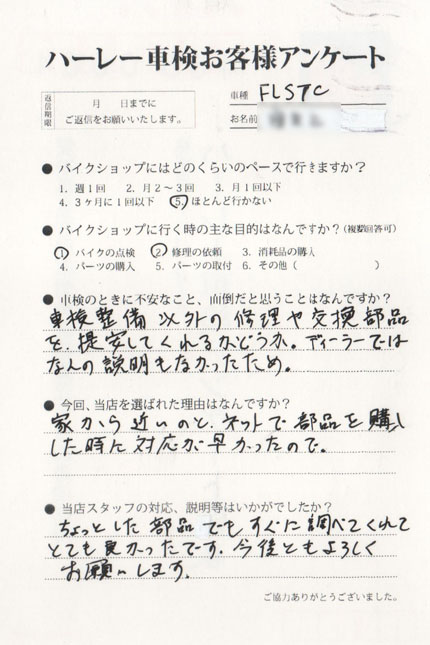 ハーレー車検お客様アンケート
返信期限
月　日までに
ご返信をお願いいたします。
車種 FLSTC
お名前
● バイクショップにはどのくらいのペースで行きますか？
1. 週1回　2. 月2～3回　3. 月1回以下
4. 3ヶ月に1回以下　5. ほとんど行かない
● バイクショップに行く時の主な目的はなんですか？(複数回答可)
1 バイクの点検　2. 修理の依頼　3. 消耗品の購入
4. パーツの購入　5. パーツの取付　6. その他（　　　　）
● 車検のときに不安なこと、面倒だと思うことはなんですか？
車検整備以外の修理や交換部品
を、提案してくれるかどうか。ディーラーでは
なんの説明もなかったため。
● 今回、当店を選ばれた理由はなんですか？
家から近いのと、ネットで部品を購入
した時に対応が早かったので。
● 当店スタッフの対応、説明等はいかがでしたか？
ちょっとした部品でもすぐに調べてくれて
とても良かったです。今後ともよろしく
お願いします。
ご協力ありがとうございました。